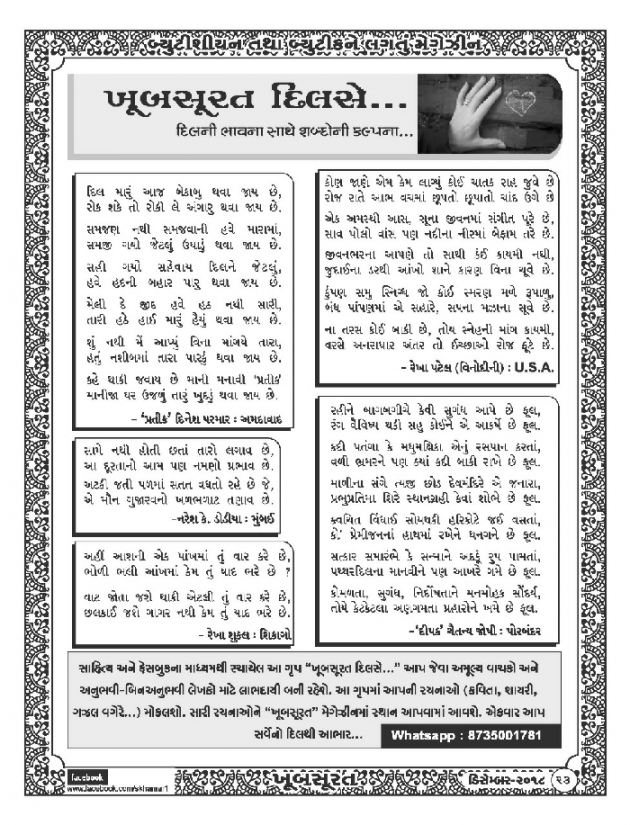 બ્યુટીશીયન તથા બ્યુટીકને લગતું મેગેઝીન
ખૂબસૂરત દિલસે...
દિલની ભાવના સાથે શબ્દોની કલ્પના...
દિલ મારું આજ બેકાબુ થવા જાય છે,
રોક શકે તો રોકી લે અંગારુ થવા જાય છે.
સમજણ નથી સમજવાની હવે મારામાં,
સમજી ગયો જેટલું ઉઘાડું થવા જાય છે.
સહી ગયો સહેવાય દિલને જેટલું,
હવે હદની બહાર પારુ થવા જાય છે.
મેલી દે જીદ હવે હઠ નથી સારી,
તારી હઠે હાઈ મારું હૈયું થવા જાય છે.
શું નથી મેં આપ્યું વિના માંગયે તારા,
હતું નશીબમાં તારા પારકું થવા જાય છે.
કહે થાકી જવાય છે માની મનાવી ‘પ્રતીક’
માનીજા ઘર ઉજળું તારું ખુદડું થવા જાય છે.
– ‘પ્રતીક’ દિનેશ પરમાર : અમદાવાદ
સામે નથી હોતી છતાં તારો લગાવ છે,
આ દૂરતાનો આમ પણ નમણો પ્રભાવ છે.
અટકી જતી પળમાં સતત વધતો રહે છે જે,
એ મૌન ગુજારવનો ખળભળાટ તણાવ છે.
–નરેશ કે. ડોડીયા : મુંબઈ
અહીં આશની એક પાંખમાં તું વાર કરે છે,
ભોળી ભલી આંખમાં કેમ તું યાદ ભરે છે ?
વાટ જોતા જશે થાકી એટલી તું વાર કરે છે,
છલકાઈ જશે ગાગર નથી કેમ તું યાદ ભરે છે.
– રેખા શુકલ : શિકાગો
કોણ જાણે એમ કેમ લાગ્યું કોઈ ચાતક રાહ જુવે છે
રોજ રાતે આભ વચમાં છૂપતો છૂપાતો ચાંદ ઉગે છે
એક અમરથી આશ, સૂના જીવનમાં સંગીત પૂરે છે,
સાવ પોલો વાંસ પણ નદીના નીરમાં બેફામ તરે છે.
જીવનભરના આપણે તો સાથી કંઈ કાયમી નથી,
જુદાઈના ડરથી આંખો શાને કારણ વિના ચૂવે છે.
કુંપણ સમુ સ્નિગ્ધ જો કોઈ સ્મરણ મળે રૂપાળુ,
બંધ પાંપણમાં એ સહારે, સપના મઝાના સૂવે છે.
ના તરસ કોઈ બાકી છે, તોય સ્નેહની માંગ કાયમી,
વરસે અનરાધાર અંતર તો ઈચ્છાઓ રોજ ફૂટે છે.
– રેખા પટેલ (વિનોદીની) : U.S.A.
રહીને બાગબગીચે કેવી સુગંધ આપે છે ફૂલ,
રંગ વૈવિધ્ય થકી સહુ કોઈને એ આકર્ષે છે ફૂલ.
કદી પતંગા કે મધુમક્ષિકા એનું રસપાન કરતાં,
વળી ભ્રમરને પણ ક્યાં કદી બાકી રાખે છે ફૂલ.
માળીના સંગે ત્યજી છોડ દેવમંદિરે એ જનારા,
પ્રભુપ્રતિમા શિરે સ્થાનગ્રહી કેવાં શોભે છે ફૂલ.
કવચિત વિંધાઈ સોયથકી હરિકોટે જઈ વસતાં,
કો' પ્રેમીજનનાં હાથમાં રખેને ધનગને છે ફૂલ.
સત્કાર સમારંભે કે સન્માને અદકું રૂપ પામતાં,
પથ્થરદિલના માનવીને પણ આખરે ગમે છે ફૂલ.
કોમળતા, સુગંધ, નિર્દોષતાને મનમોહક સૌંદર્ય,
તોયે કેટકેટલા અણગમતા પ્રહારોને ખમે છે ફૂલ.
–‘દીપક’ ચૈતન્ય જોષી : પોરબંદર
સાહિત્ય અને ફેસબુકના માધ્યમથી રચાયેલ આ ગૃપ “ખૂબસૂરત દિલસે...” આપ જેવા અમૂલ્ય વાચકો અને
અનુભવી-બિનઅનુભવી લેખકો માટે લાભદાયી બની રહેશે. આ ગૃપમાં આપની રચનાઓ (કવિતા, શાયરી,
ગઝલ વગેરે...) મોકલશો. સારી રચનાઓને “ખૂબસૂરત” મેગેઝીનમાં સ્થાન આપવામાં આવશે. એકવાર આપ
સર્વેનો દિલથી આભાર...
Whatsapp : 8735001781
facebook
www.facebook.com/skhamar1
ખૂબસૂરત
ડિસેમ્બર-૨૦૧૮
૨૩